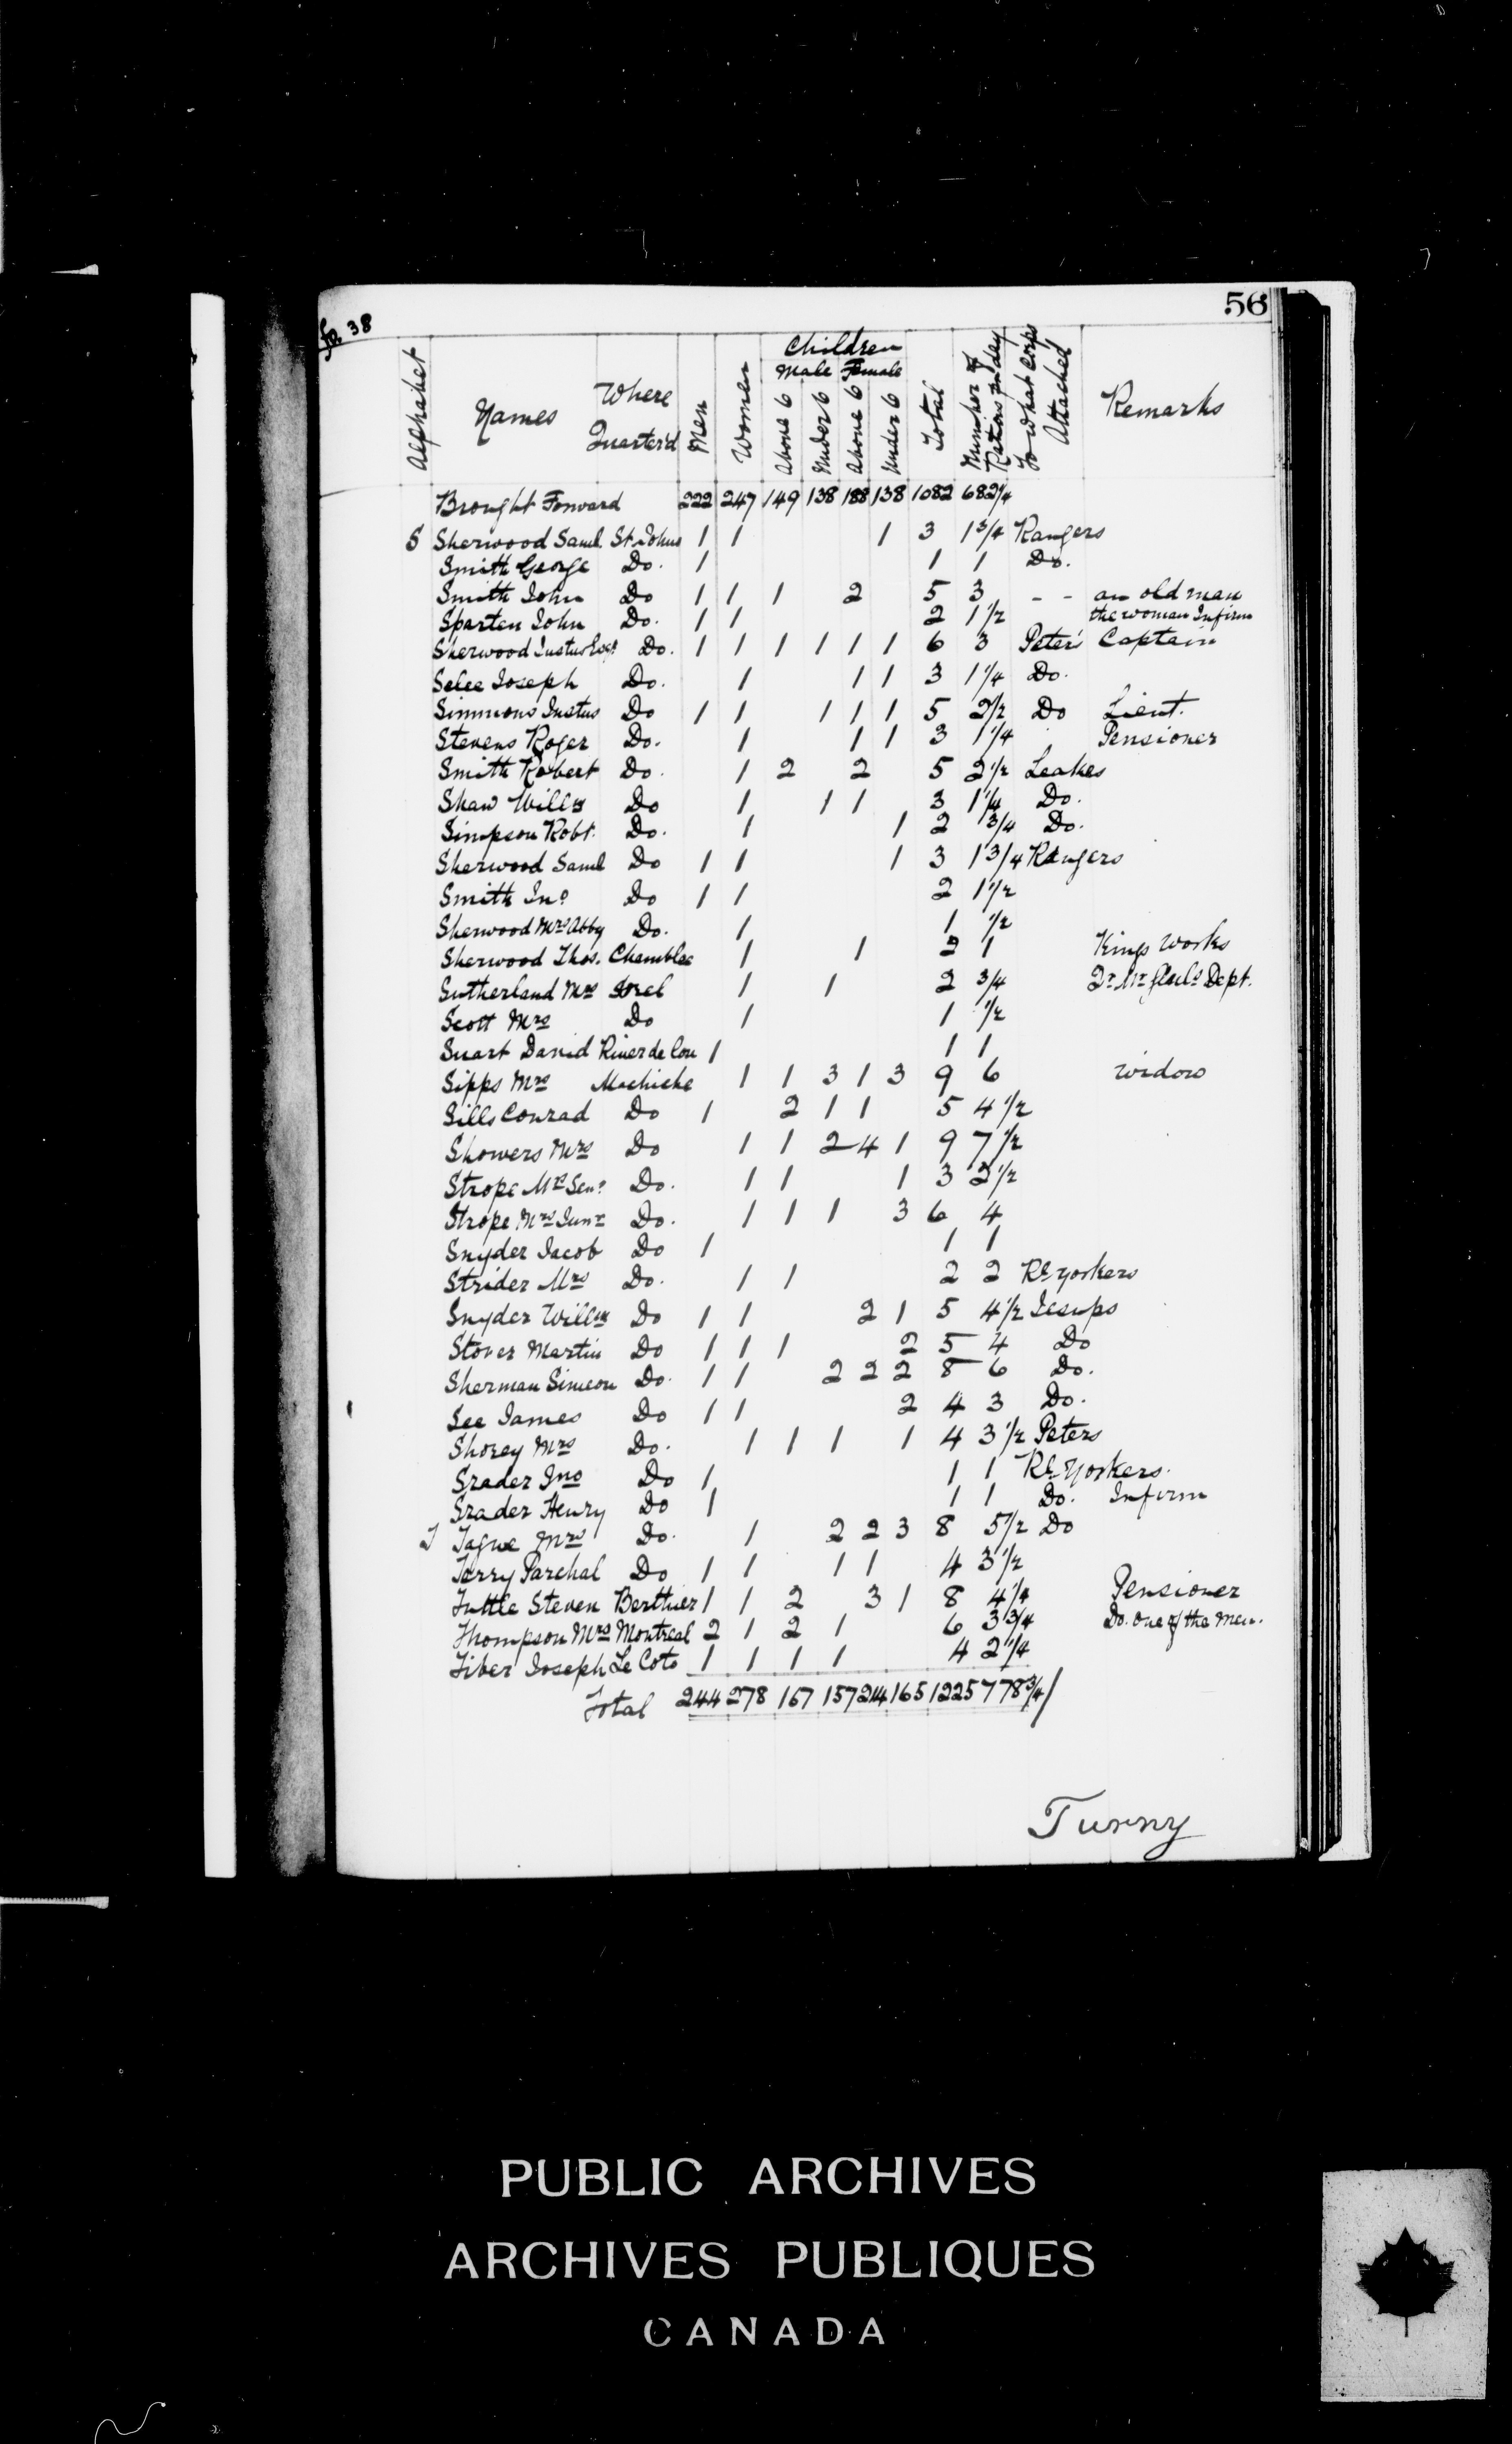 56
fo. 38
Alphabet Names Where Quarter'd Men Women Children Male Female Above 6 Under 6 Above 6 Under 6 Total Number of Rations pr day To what Corps Attached Remarks
Brought Forward 222 247 149 138 188 138 1082 682 1/4
S Sherwood Saml. St Johns 1 1 1 3 1 3/4 Rangers
Smith George Do. 1 1 1 Do.
Smith John Do 1 1 1 2 5 3 - - an old man
Sparten John Do. 1 1 2 1 1/2 the woman Infirm
Sherwood Justus Esqr Do. 1 1 1 1 1 1 6 3 Peter's Captain
Selee Joseph Do. 1 1 1 3 1 1/4 Do.
Simmons Justus Do 1 1 1 1 1 5 2 1/2 Do Lieut.
Stevens Roger Do. 1 1 1 3 1 1/4 Pensioner
Smith Robert Do. 1 2 2 5 2 1/2 Leakes
Shaw Willm Do 1 1 1 3 1 1/4 Do.
Simpson Robt. Do. 1 1 2 3/4 Do.
Sherwood Saml Do 1 1 1 3 1 3/4 Rangers
Smith Jno Do 1 1 2 1 1/2
Sherwood Mrs Abby Do. 1 1 1/2
Sherwood Thos. Chamblee 1 1 2 1 Kings Works
Sutherland Mrs Sorel 1 1 2 3/4 Qr. Mr. Genls Dept.
Scott Mrs Do 1 1 1/2
Suart David River de Lou 1 1 1
Sipps Mrs Machiche 1 1 3 1 3 9 6 Widow
Sills Conrad Do 1 2 1 1 5 4 1/2
Showers Mrs Do 1 1 2 4 1 9 7 1/2
Strope Mrs Senr Do. 1 1 1 3 2 1/2
Strope Mrs Junr Do. 1 1 1 3 6 4
Snyder Jacob Do 1 1 1
Strider Mrs Do. 1 1 2 2 Rl Yorkers
Snyder Willm Do 1 1 2 1 5 4 1/2 Jesups
Stover Martin Do 1 1 1 2 5 4 Do
Sherman Simeon Do. 1 1 2 2 2 8 6 Do.
See James Do 1 1 2 4 3 Do.
Shorey Mrs Do. 1 1 1 1 4 3 1/2 Peters
Srader Jno Do 1 1 1 Rl Yorkers.
Srader Henry Do 1 1 1 Do. Infirm
T Tague Mrs Do. 1 2 2 3 8 5 1/2 Do
Terry Parshal Do 1 1 1 1 4 3 1/2
Tuttle Steven Berthier 1 1 2 3 1 8 4 1/4 Pensioner
Thompson Mrs Montreal 2 1 2 1 6 3 3/4 Do. one of the men.
Tiber Joseph Le Coto 1 1 1 1 4 2 1/4
Total 244 278 167 157 214 165 1225 778 3/4 /
Turny
PUBLIC ARCHIVES
ARCHIVES PUBLIQUES
CANADA